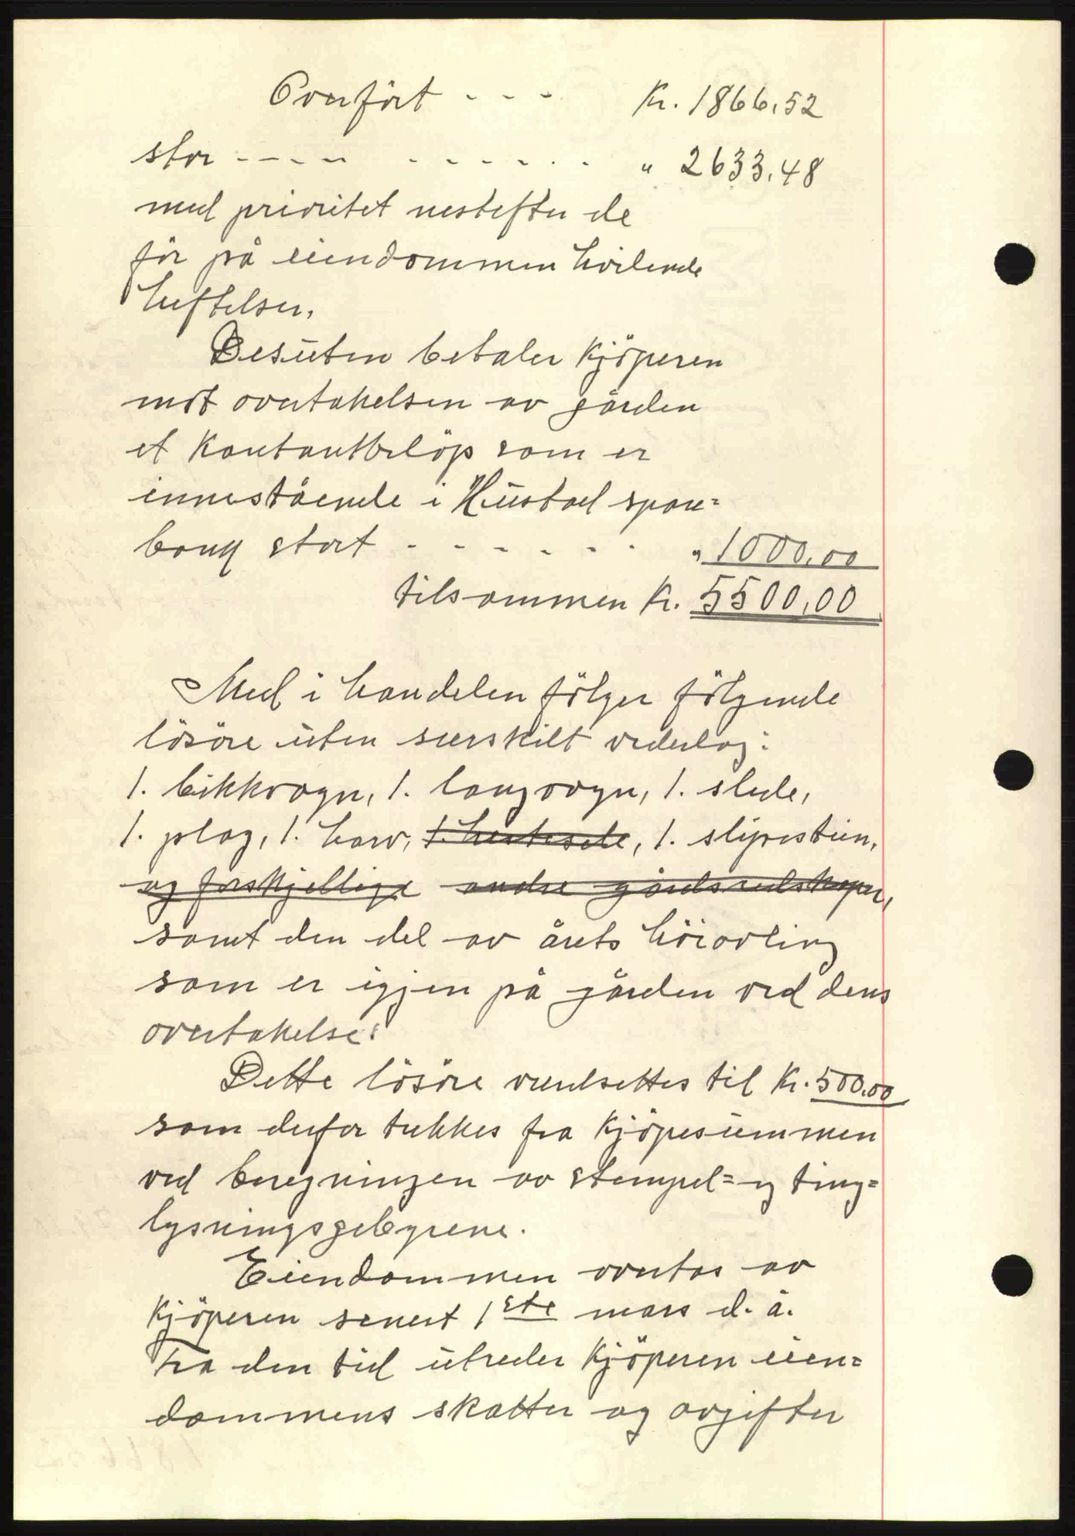 Overført - - - Kr. 1866,52
stor - - - - - - - - - - " 2633,48
med prioritet nestefter de
før på eiendommen hvilende
heftelser.
Desuten betaler kjöperen
mot overtakelsen av gården
et kontantbelöp som er
innestående i Hustad spare=
bank stort - - - - - - " 1000,00
tilsammen kr. 5500,00
Med i handelen fölger fölgende
lösöre uten særskilt vederlag:
1. kikkvogn, 1. langvogn, 1. slede,
1. plog, 1. harv, 1. hestesele, 1. slipestein,
og forskjellige andre gårdsredskaper,
samt den del av årets höiavling
som er igjen på gården ved dens
overtakelse.
Dette lösöre verdsettes til Kr. 500,00
som derfor trekkes fra kjöpesummen
ved beregningen av stempel= og ting=
lysningsgebyrene.
Eiendommen overtas av
kjöperen senest 1ste mars d. å.
Fra den tid utreder kjöperen eien=
dommens skatter og avgifter